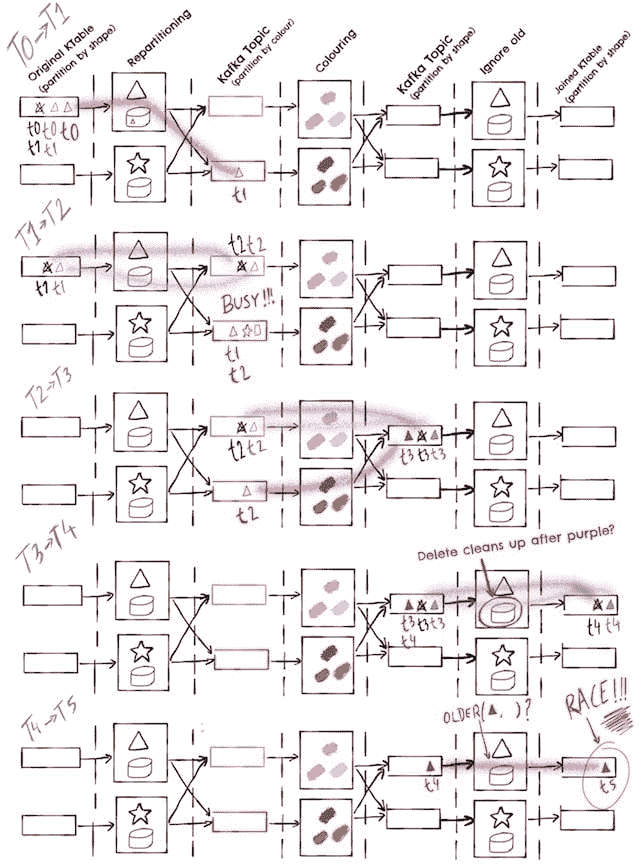 T0→T1
Original KTable
(partition by shape)
Repartitioning
Kafka Topic
(partition by colour)
Colouring
Kafka Topic
(partition by shape)
Ignore old
Joined KTable
(partition by shape)
t0 t0 t0
t1 t1
t1
T1→T2
t1 t1
t2 t2
BUSY!!!
t1
t2
T2→T3
t2 t2
t2
t3 t3 t3
T3→T4
Delete cleans up after purple?
t3 t3 t3
t4
t4 t4
T4→T5
OLDER(▲, )?
RACE!!!
t4
t5